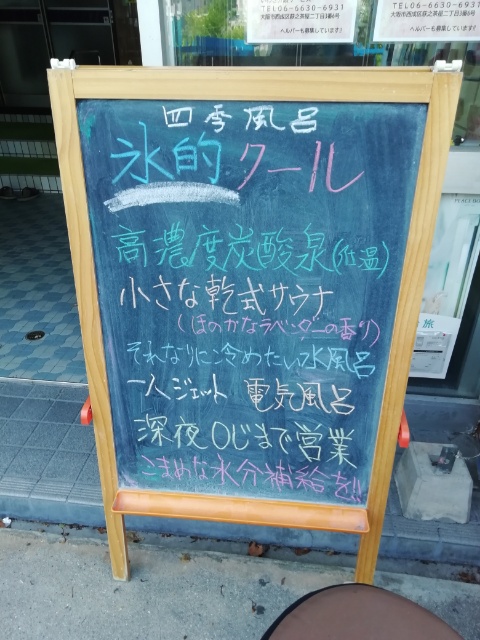 TEL06-6630-6931
大阪市西成区萩之茶屋二丁目3番6号
ヘルパーも募集しています!
TEL06-6630-6931
大阪市西成区萩之茶屋二丁目3番6号
ヘルパーも募集しています!
四季風呂
氷的クール
高濃度炭酸泉(低温)
小さな乾式サウナ
(ほのかなラベンダーの香り)
それなりに冷めたい水風呂
一人ジェット 電気風呂
深夜0じまで営業
こまめな水分補給を!!
旅